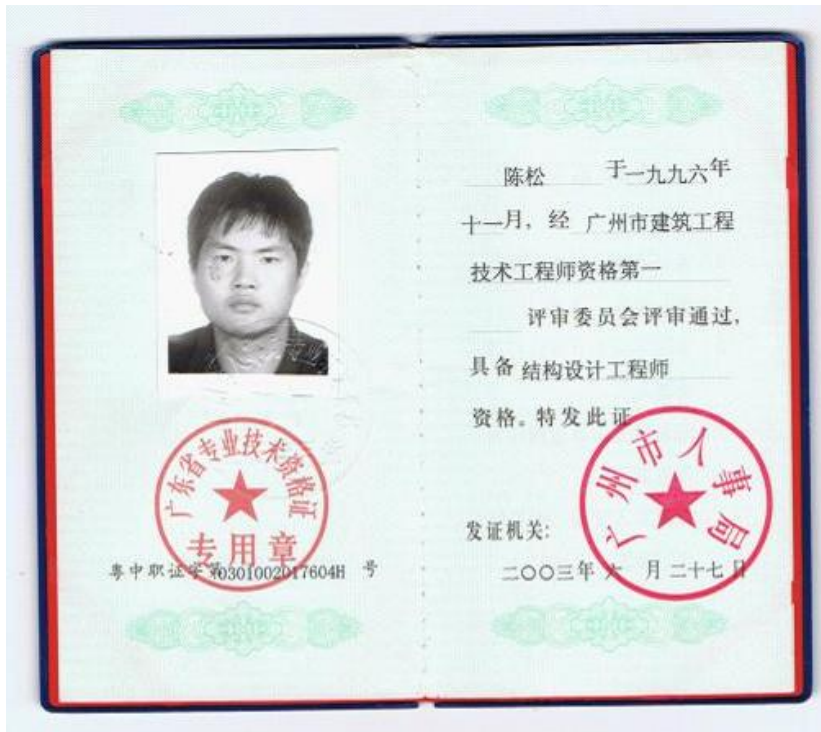 广东省专业技术资格证
专用章
粤中职证字第0301002017604H 号
陈松 于一九九六年
十一月，经 广州市建筑工程
技术工程师资格第一
评审委员会评审通过，
具备 结构设计工程师
资格。特发此证
广州市人事局
发证机关：
二〇〇三年 六 月 二十七 日